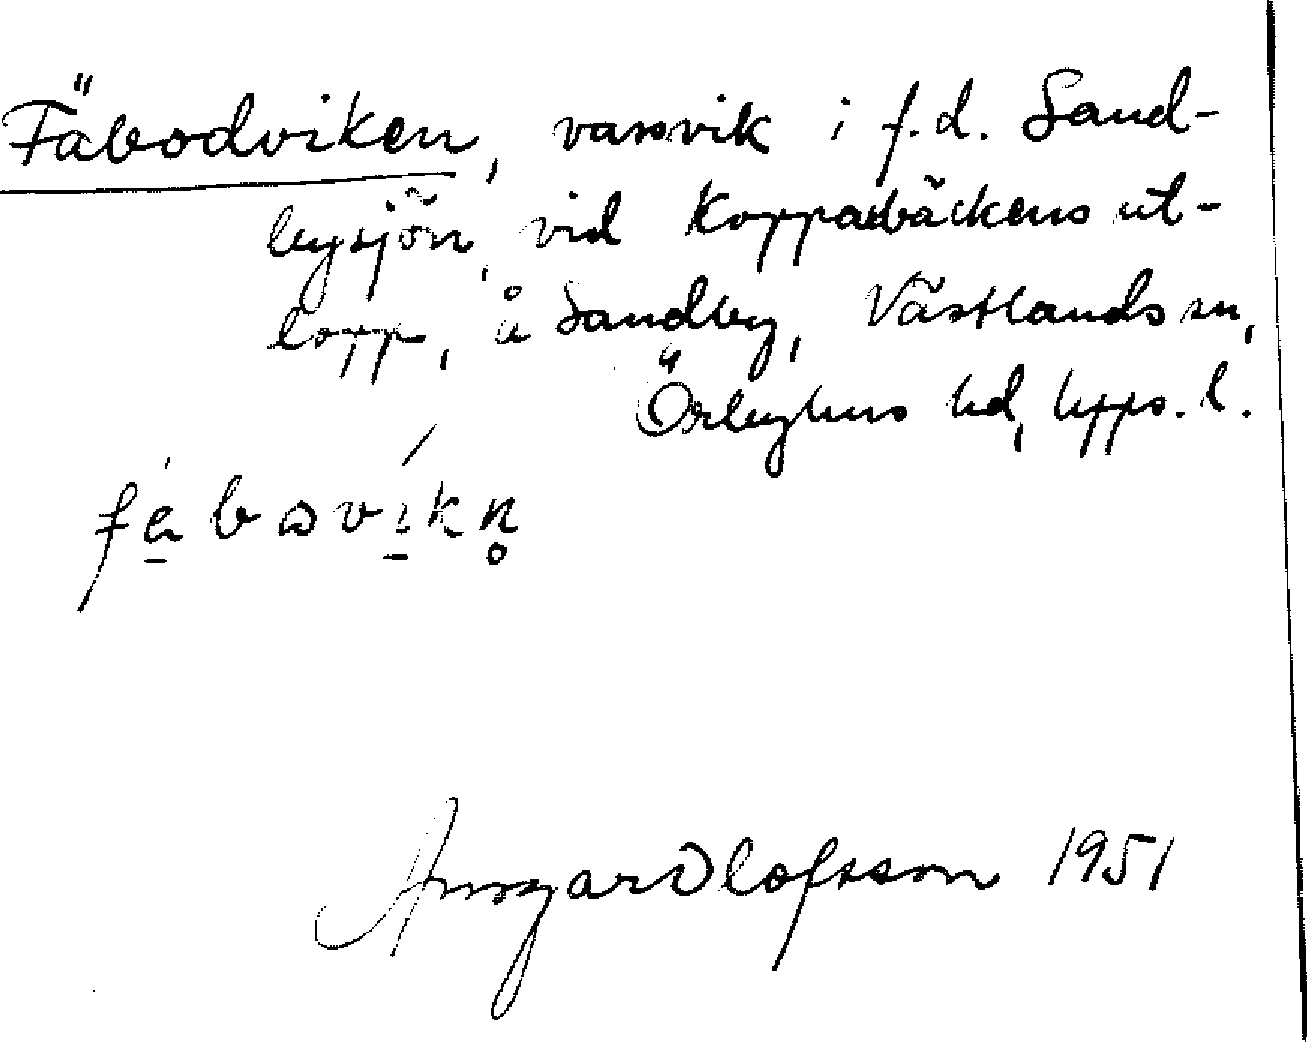 Fäbodviken, vassvik i f.d. Sand-
bysjön, vid Kopparbäckens ut-
lopp, å Sandby, Västlands sn,
Örbyhus hd, Upps. l.
fäbovíkn̥
Ansgar Olofsson 1951